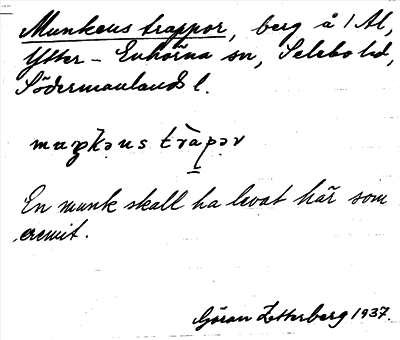 Munkens trappor, berg å 1 Al,
Ytter-Enhörna sn, Selebo hd,
Södermanlands l.
En munk skall ha levat här som
eremit.
Göran Zetterberg 1937.